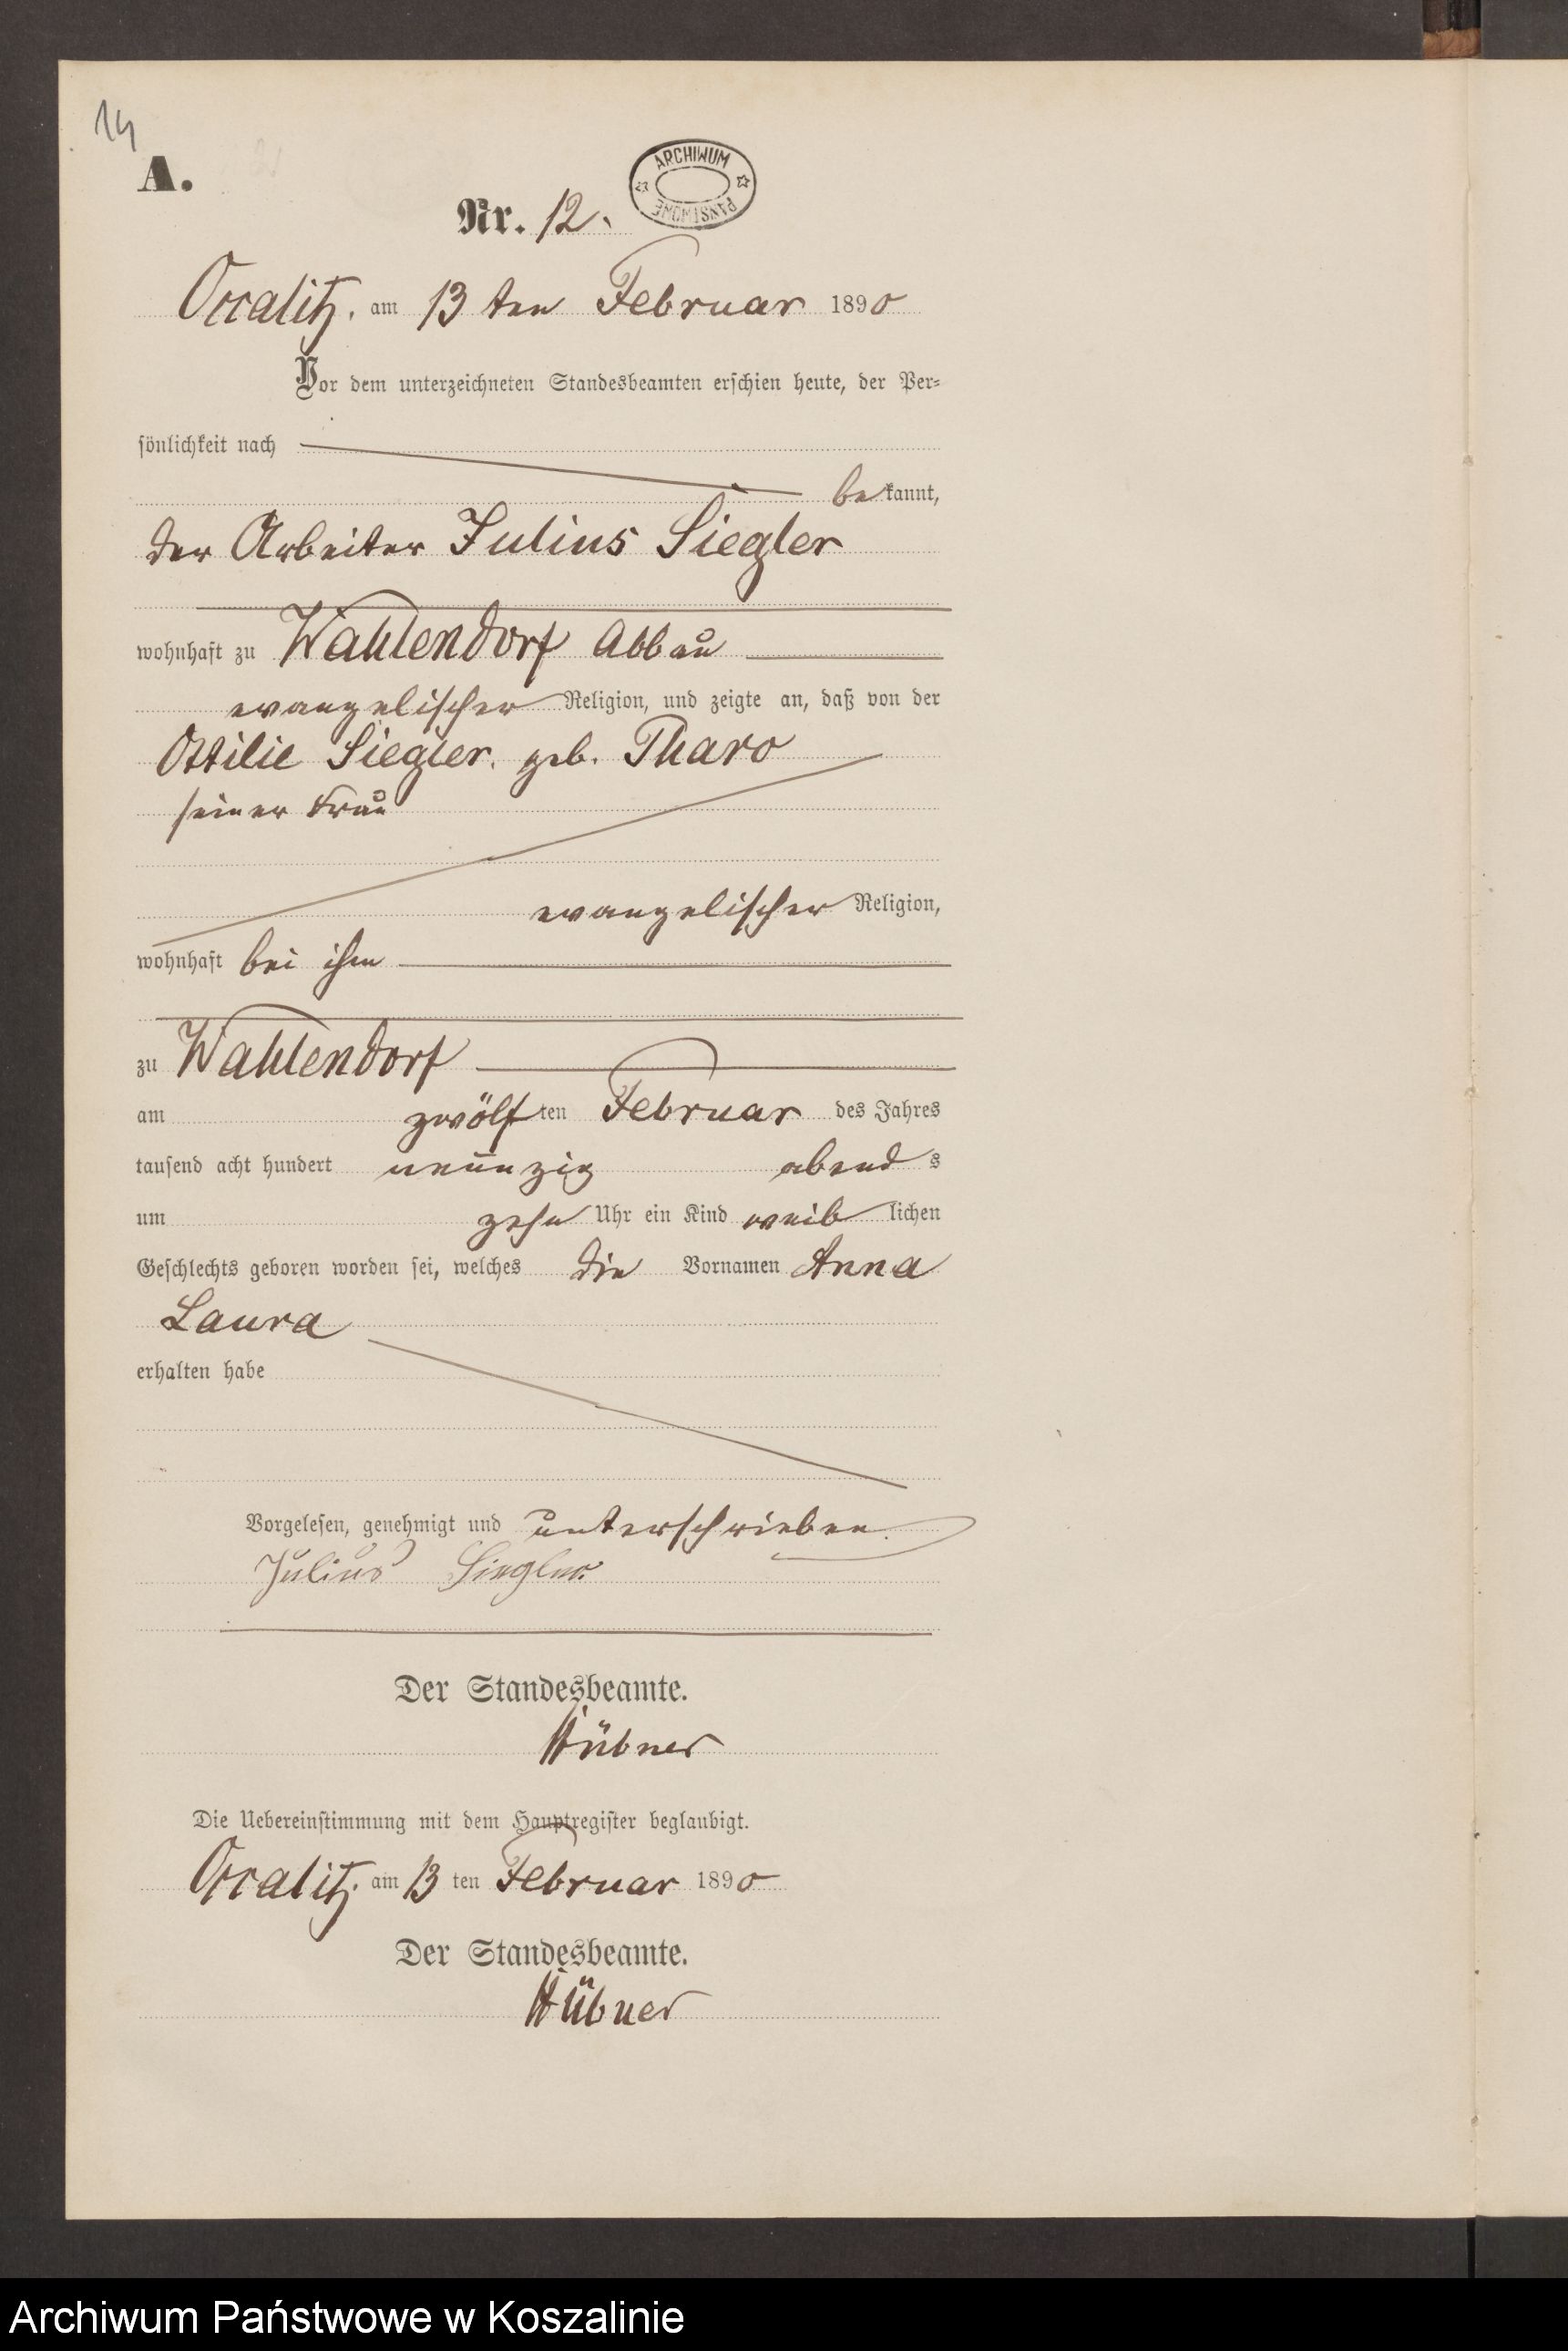 14
A.
ARCHIWUM PAŃSTWOWE
Nr. 12.
Occalitz, am 13 ten Februar 1890
Vor dem unterzeichneten Standesbeamten erschien heute, der Per=
sönlichkeit nach
bekannt,
der Arbeiter Julius Siegler
wohnhaft zu Wahlendorf Abbau
evangelischer Religion, und zeigte an, daß von der
Ottilie Siegler. geb. Tharo
seiner Frau
evangelischer Religion,
wohnhaft bei ihm
zu Wahlendorf
am zwölften Februar des Jahres
tausend acht hundert neunzig abends
um zehn Uhr ein Kind weiblichen
Geschlechts geboren worden sei, welches die Vornamen Anna
Laura
erhalten habe
Vorgelesen, genehmigt und unterschrieben.
Julius Siegler.
Der Standesbeamte.
Hübner
Die Uebereinstimmung mit dem Hauptregister beglaubigt.
Occalitz. am 13 ten Februar 1890
Der Standesbeamte.
Hübner
Archiwum Państwowe w Koszalinie